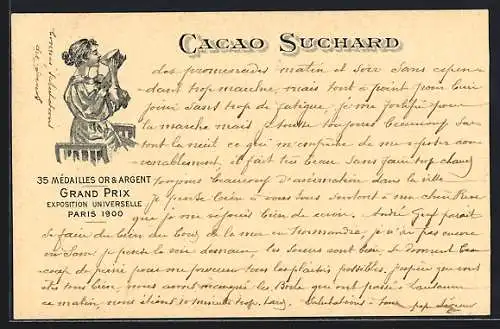 CACAO SUCHARD
bonnes salutations
de
des promenades matin et soir sans cepen
dant trop marcher, mais tout à point pour bien
jouir sans trop de fatigue, je me fortifie pour
la marche mais tousse toujours beaucoup sur
tout la nuit ce qui m'empêche de me reposer con
venablement, il fait très beau sans faire trop chaud
toujours beaucoup d'animation dans la ville
je pense bien à vous tous surtout à ma chère
que je me réjouis bien de revoir. André paraît
se faire du bien au bord de la mer en Normandie, je n'ai pas encore
vu je pense le voir demain, les sœurs sont bien se donnent beau
coup de peine pour me procurer tous les plaisirs possibles. J'espère que vous
êtes tous bien, nous avons manqué les qui ont passé Lausanne
ce matin, nous étions 10 minutes trop tard. Salutations à tous
35 MÉDAILLES OR & ARGENT
GRAND PRIX
EXPOSITION UNIVERSELLE
PARIS 1900